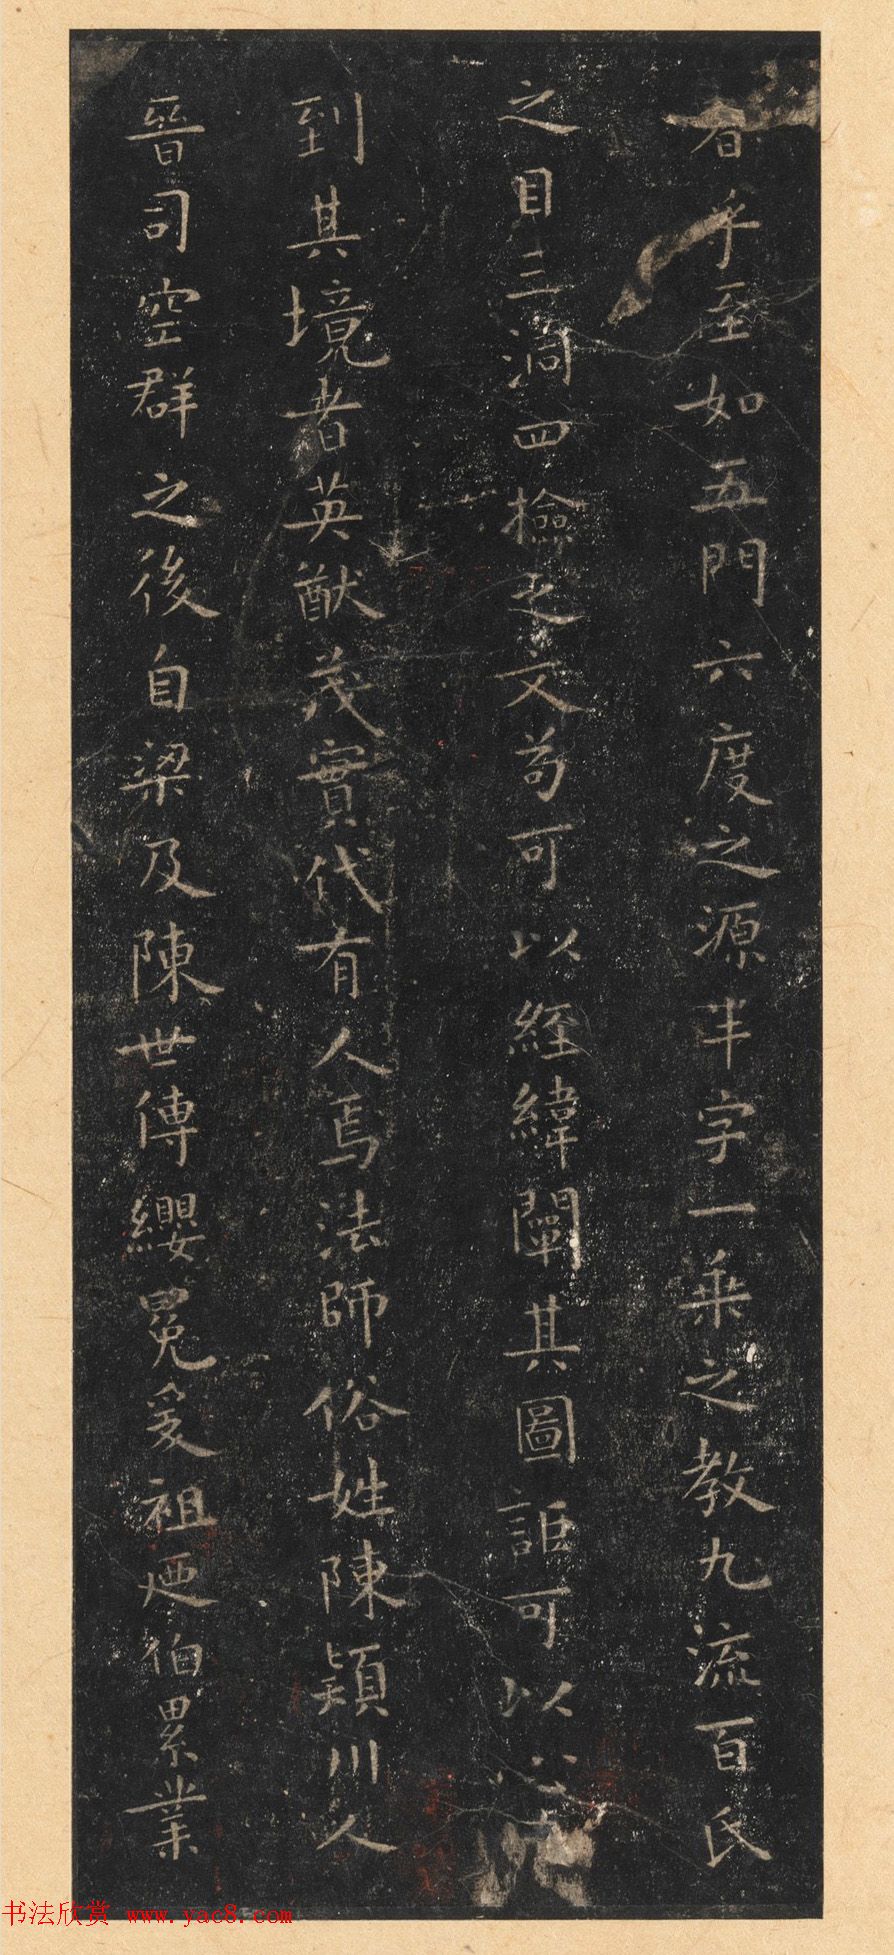 者乎至如五門六度之源半字一乘之教九流百氏
之目三洞四檢之文苟可以經緯闡其圖詎可以心
到其境者英猷茂實代有人焉法師俗姓陳潁川人
晉司空群之後自梁及陳世傳纓冕爰祖迺伯累業
书法欣赏 www.yac8.com